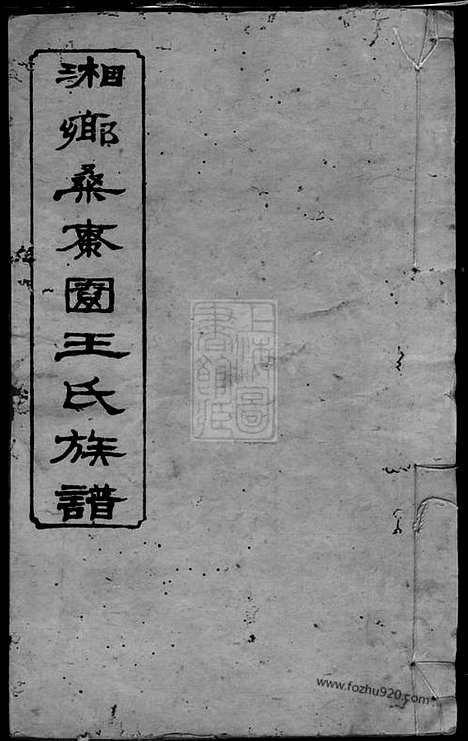 湘鄉桑棗園王氏族譜
上海圖
書館藏
www.fozhu920.com